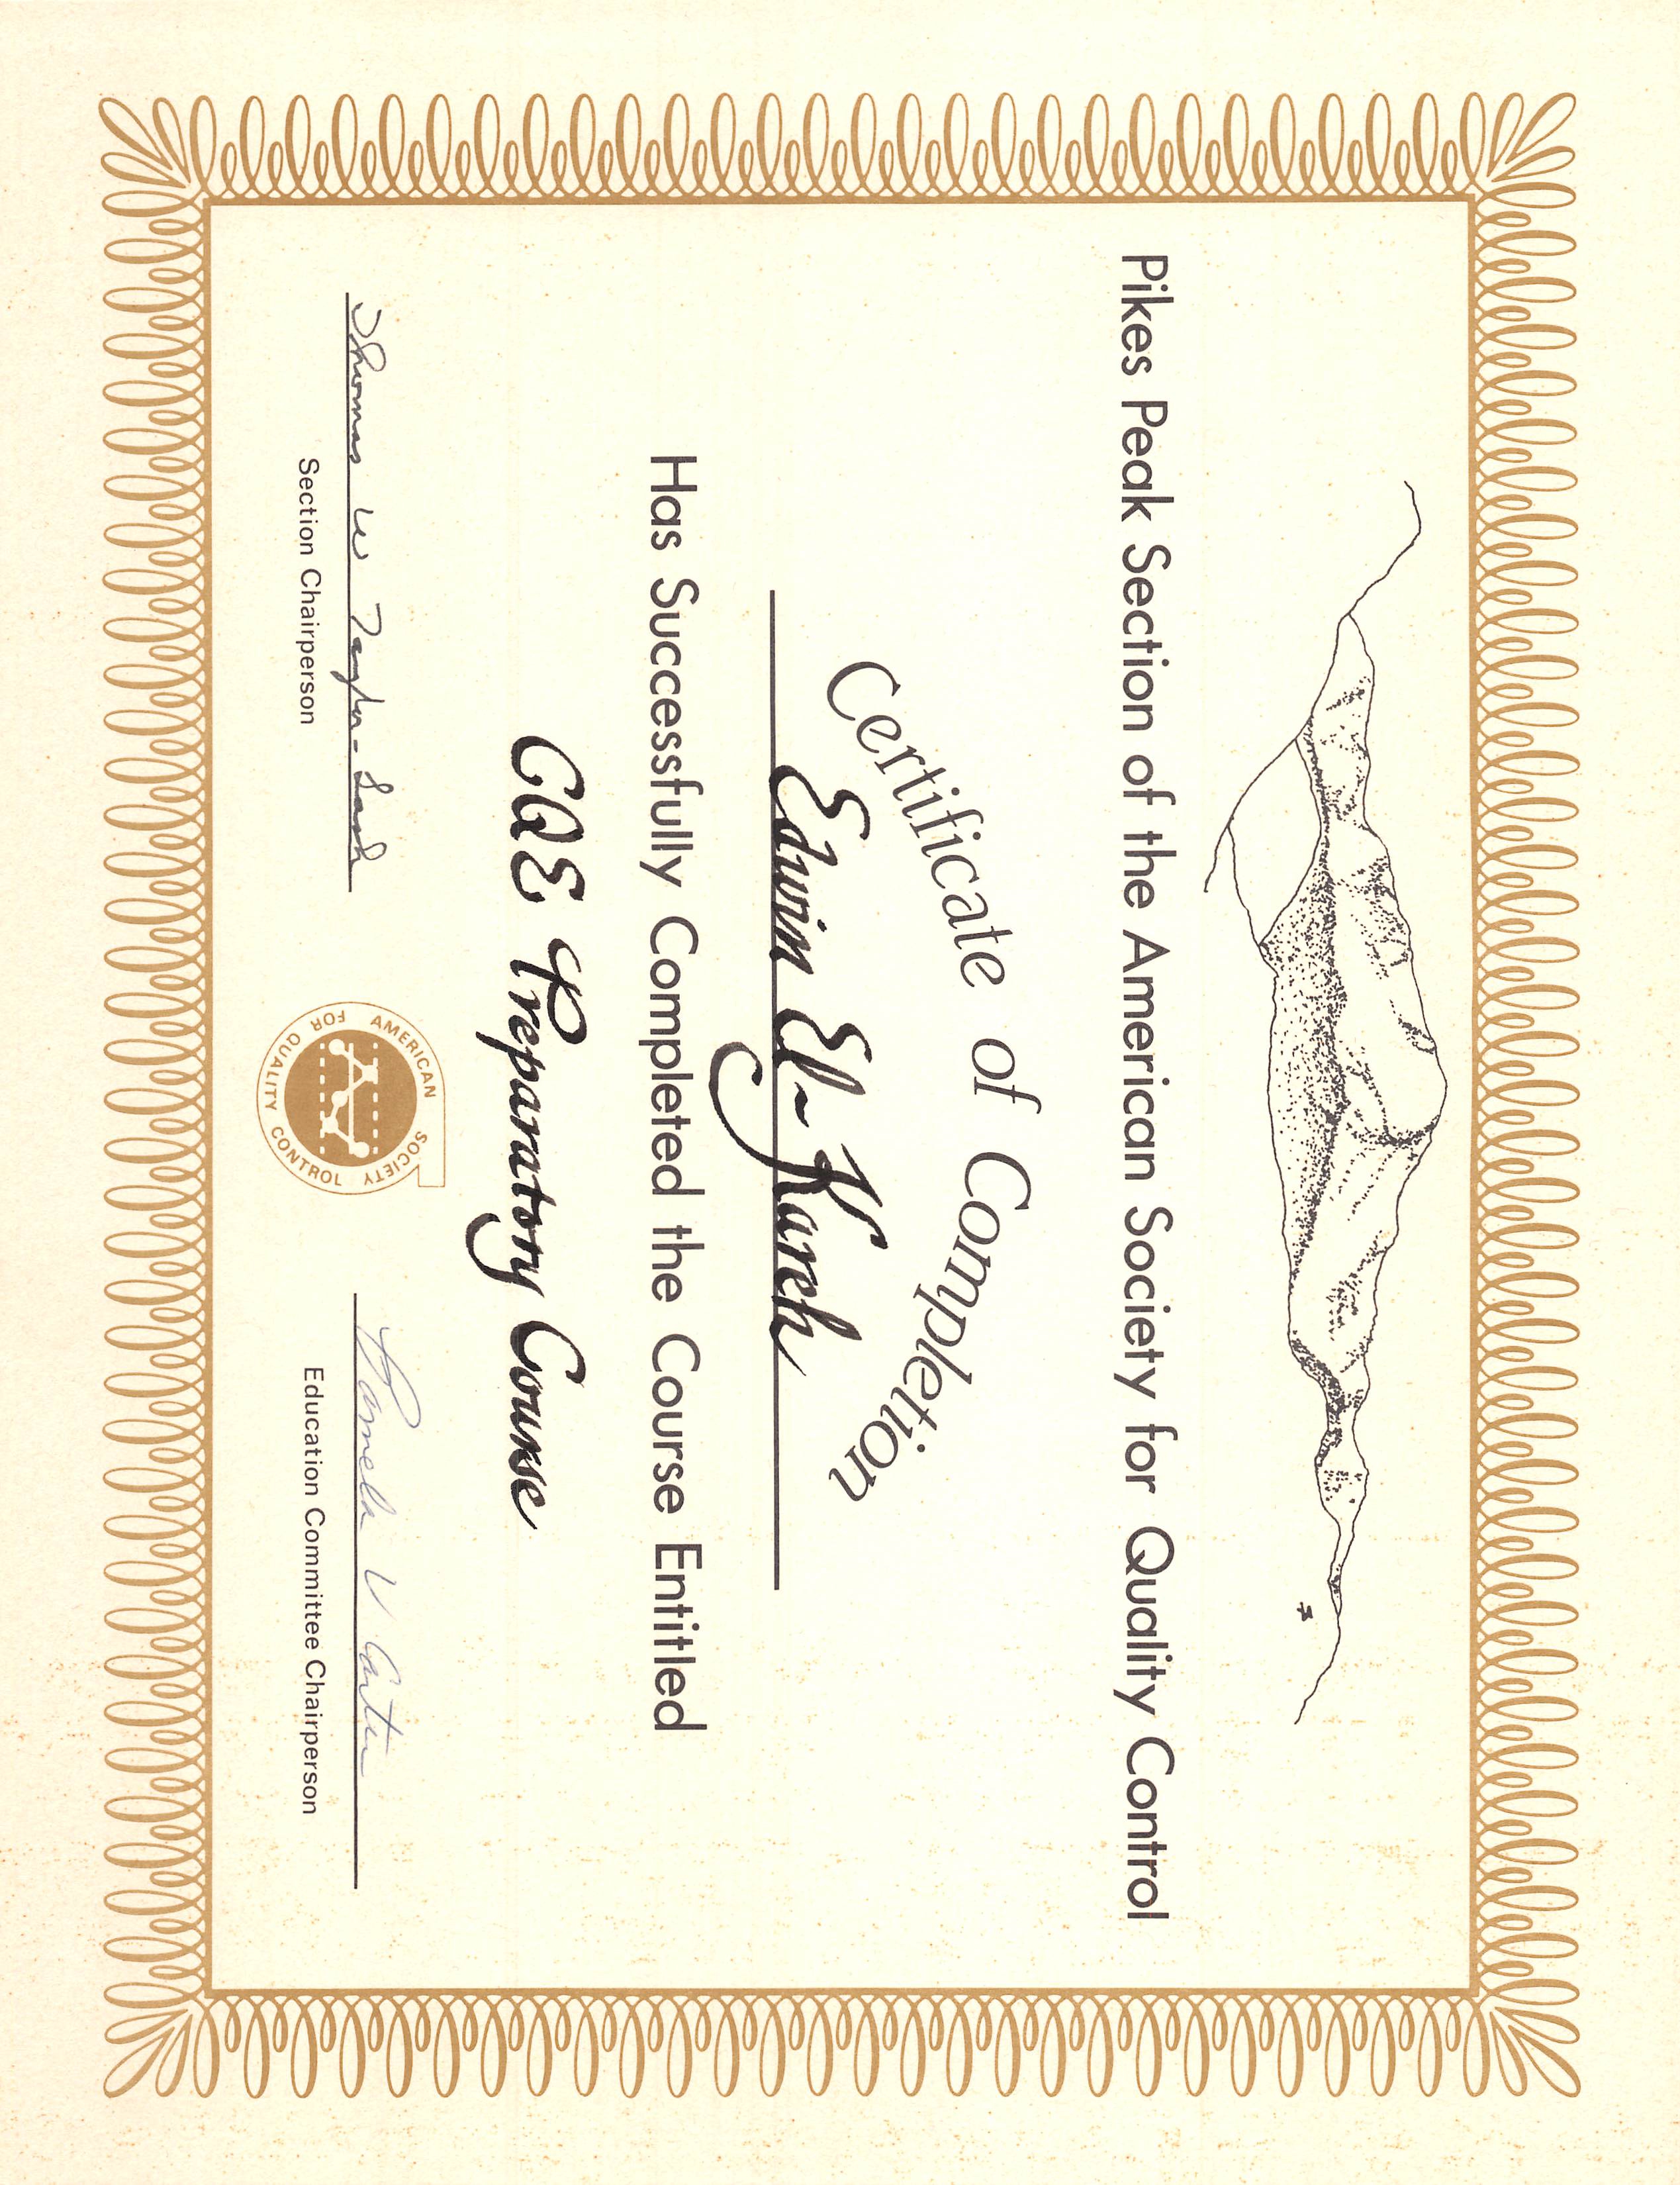 Pikes Peak Section of the American Society for Quality Control
Certificate of Completion
Edwin El-Kareh
Has Successfully Completed the Course Entitled
CQE Preparatory Course
Thomas W Taylor-
Section Chairperson
AMERICAN SOCIETY
FOR QUALITY CONTROL
Pamela V Carter
Education Committee Chairperson